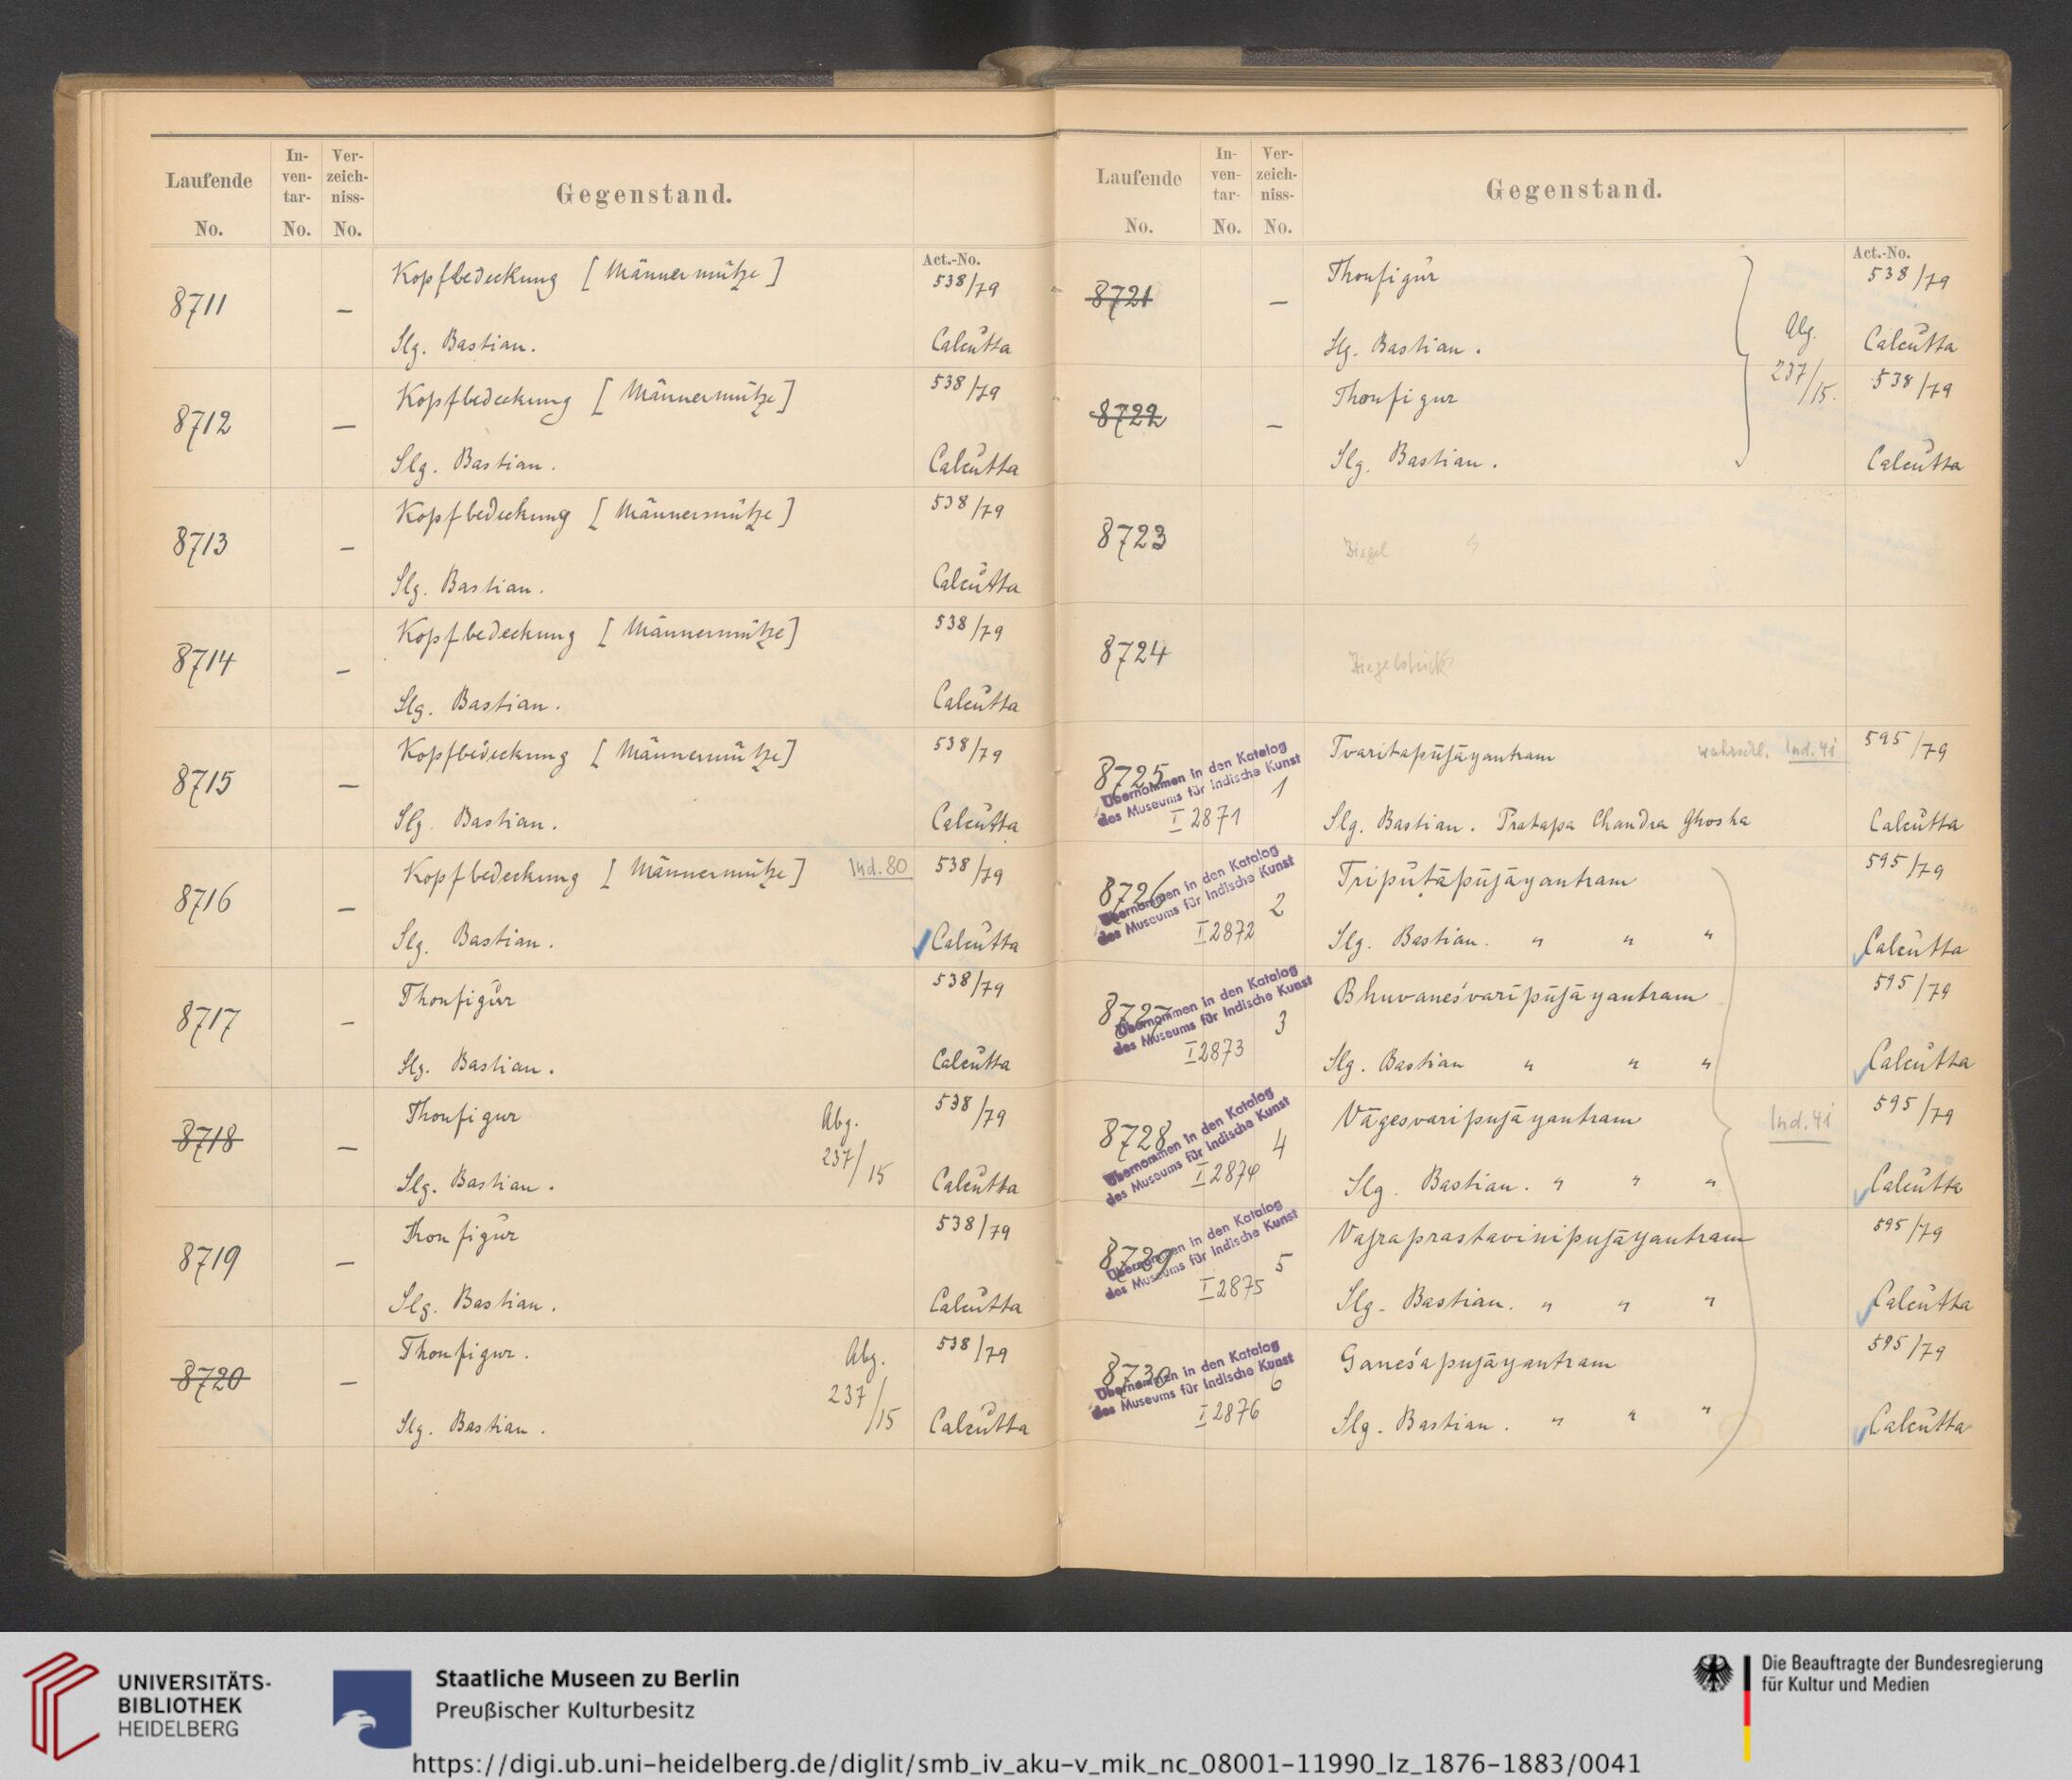 Laufende No.
In-ven-tar- No.
Ver-zeich-niss- No.
Gegenstand.
Act.-No.
8711 — Kopfbedeckung [Männermütze] 538/79
Slg. Bastian. Calcutta
8712 — Kopfbedeckung [Männermütze] 538/79
Slg. Bastian. Calcutta
8713 — Kopfbedeckung [Männermütze] 538/79
Slg. Bastian. Calcutta
8714 — Kopfbedeckung [Männermütze] 538/79
Slg. Bastian. Calcutta
8715 — Kopfbedeckung [Männermütze] 538/79
Slg. Bastian. Calcutta
8716 — Kopfbedeckung [Männermütze] Ind. 80 538/79
Slg. Bastian. Calcutta
8717 — Thonfigur 538/79
Slg. Bastian. Calcutta
8718 — Thonfigur Abg. 237/15 538/79
Slg. Bastian. Calcutta
8719 — Thonfigur 538/79
Slg. Bastian. Calcutta
8720 — Thonfigur. Abg. 237/15 538/79
Slg. Bastian. Calcutta
Laufende No.
In-ven-tar- No.
Ver-zeich-niss- No.
Gegenstand.
Act.-No.
8721 — Thonfigur 538/79
Slg. Bastian. Abg. 237/15. Calcutta
8722 — Thonfigur 538/79
Slg. Bastian. Calcutta
8723 Ziegel
8724 Ziegelstück
8725 1 Tvaritapūjāyantram wahrschl. Ind. 41 595/79
Übernommen in den Katalog
des Museums für Indische Kunst
I 2871 Slg. Bastian. Pratapa Chandra Ghosha Calcutta
8726 2 Tripuṭāpūjāyantram 595/79
Übernommen in den Katalog
des Museums für Indische Kunst
I 2872 Slg. Bastian. " " " Calcutta
8727 3 Bhuvaneśvarīpūjāyantram 595/79
Übernommen in den Katalog
des Museums für Indische Kunst
I 2873 Slg. Bastian " " " Calcutta
8728 4 Vāgesvaripujāyantram Ind. 41 595/79
Übernommen in den Katalog
des Museums für Indische Kunst
I 2874 Slg. Bastian. " " " Calcutta
8729 5 Vajraprastavinipujāyantram 595/79
Übernommen in den Katalog
des Museums für Indische Kunst
I 2875 Slg. Bastian. " " " Calcutta
8730 6 Ganeśapujāyantram 595/79
Übernommen in den Katalog
des Museums für Indische Kunst
I 2876 Slg. Bastian. " " " Calcutta
UNIVERSITÄTS-
BIBLIOTHEK
HEIDELBERG
Staatliche Museen zu Berlin
Preußischer Kulturbesitz
Die Beauftragte der Bundesregierung
für Kultur und Medien
https://digi.ub.uni-heidelberg.de/diglit/smb_iv_aku-v_mik_nc_08001-11990_lz_1876-1883/0041